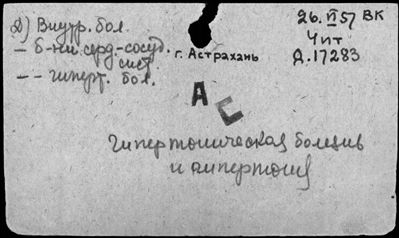 Д) Внутр. бол.
– б-ни серд.-сосуд. сист
– – гиперт. бол.
г. Астрахань
26.VI 57 ВК
Чит
Д.17283
АС
Гипертоническая болезнь
и гипертония